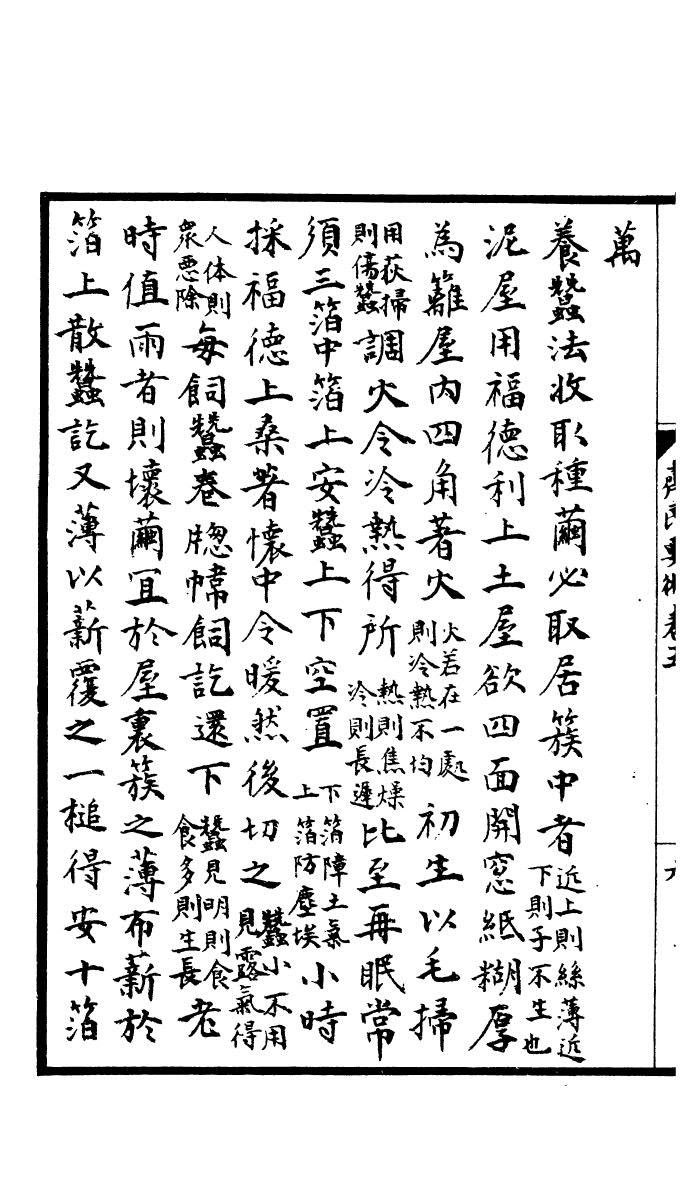 齊民要術卷五
萬
養蠶法收取種繭必取居簇中者近上則絲薄近下則子不生也
泥屋用福德利上土屋欲四面開窓紙糊厚
為籬屋内四角著火火若在一處則冷熱不均初生以毛掃
用荻掃則傷蠶調火令冷熱得所熱則焦燥冷則長遲比至再眠常
須三箔中箔上安蠶上下空置下箔障土氣上箔防塵埃小時
採福德上桑著懷中令暖然後切之蠶小不用見露氣得
人体則衆惡除每飼蠶卷牕幃飼訖還下蠶見明則食食多則生長老
時值雨者則壞繭冝於屋裏簇之薄布薪於
箔上散蠶訖又薄以薪覆之一槌得安十箔